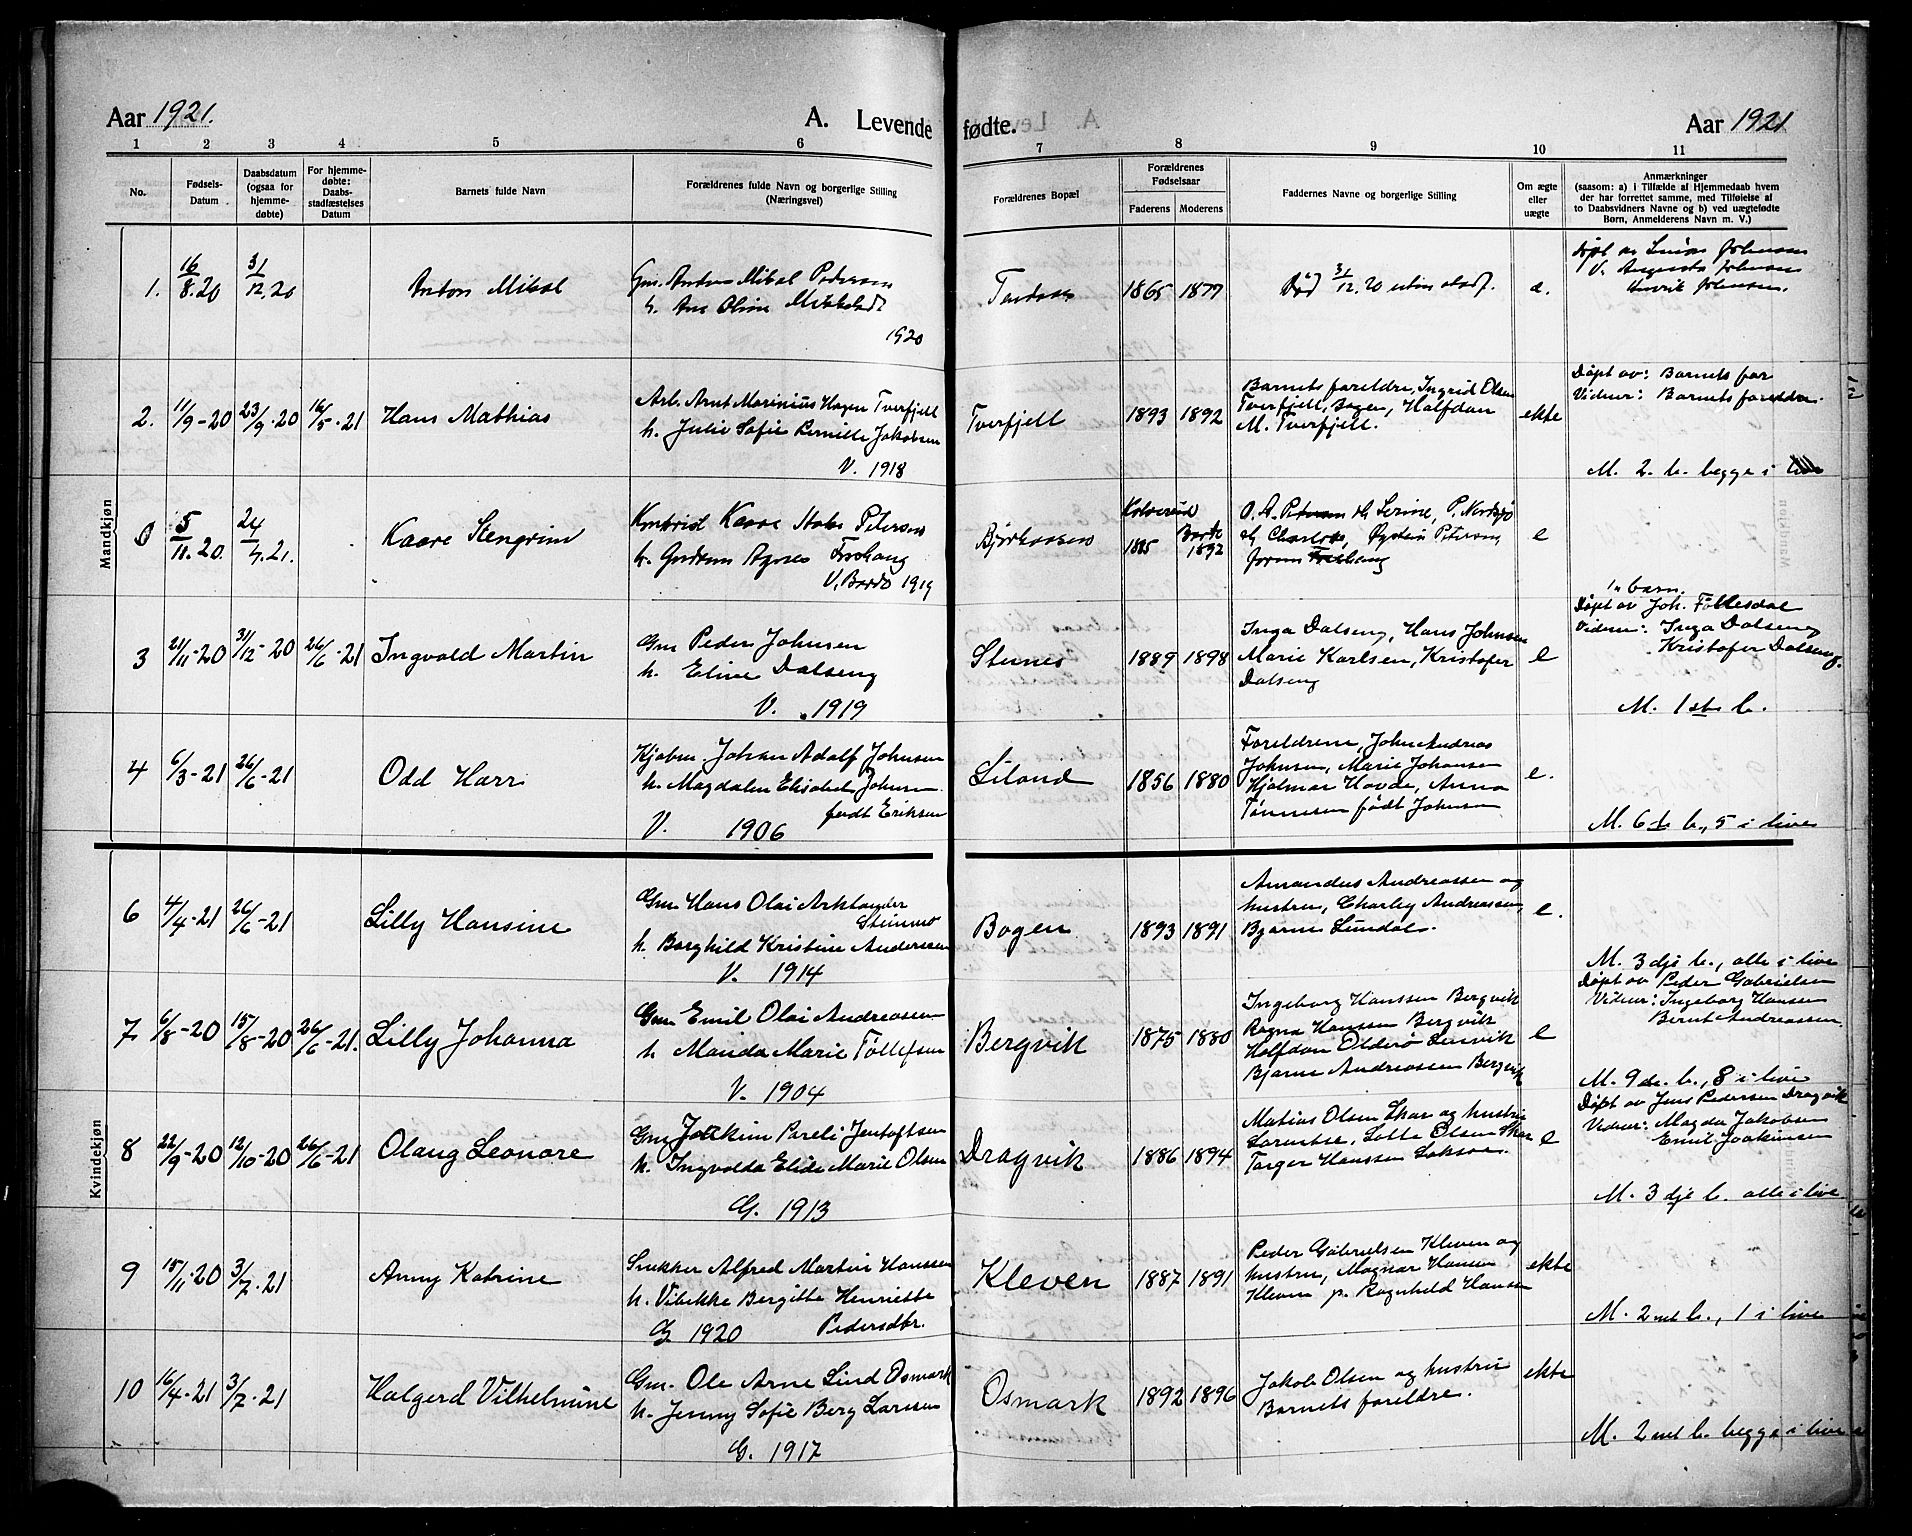 Aar 1921.
A. Levende fødte.
Aar 1921
1 2 3 4 5 6 7 8 9 10 11
No.
Fødsels-
Datum
Daabsdatum
(ogsaa for
hjemme-
døbte)
For hjemme-
døbte:
Daabs-
stadfæstelses
Datum
Barnets fulde Navn
Forældrenes fulde Navn og borgerlige Stilling
(Næringsvei)
Forældrenes Bopæl
Forældrenes
Fødselsaar
Faderens Moderens
Faddernes Navne og borgerlige Stilling
Om ægte
eller
uægte
Anmærkninger
(saasom: a) i Tilfælde af Hjemmedaab hvem
der har forrettet samme, med Tilføielse af
to Daabsvidners Navne og b) ved uægtefødte
Børn, Anmelderens Navn m. V.)
Mandkjøn
1. 16/8.20 31/12.20
Anton Mikal
Gm. Anton Mikal Pedersen
h. Ane Oline
1920
1865 1877
Død 31/12.20
Døpt av Johnsen
V. Augusta Johnsen
Henrik Johnsen.
2. 11/9-20 23/9-20 16/5-21
Hans Mathias
Arb. Arnt Marinius Hagen Tverfjell
h. Julie Sofie Pernille Jakobsen
V. 1918
Tverfjell
1893 1892
Barnets foreldre, Ingrid Olsen
Tverfjell, Bogen, Halfdan
M. Tverfjell.
ekte
Døpt av: Barnets far
Vidner: Barnets foreldre.
M. 2. b. begge i live
0 5/11.20 24/4.21
Kaare Stengrim
Kaare Petersen
h. Gudrun Agnes Frohaug
V. Bardo 1919
1892
O. A. Petersen og Serine, P.
og Charlotte, Øystein Petersen
e
3 21/11-20 31/12-20 26/6-21
Ingvald Martin
Gm Peder Johnsen
h. Eline Dalseng
V. 1919
Stenes
1889 1898
Inga Dalseng, Hans Johnsen
Marie Karlsen, Kristofer
Dalseng
e
1. barn.
Døpt av Joh. Føllesdal
Vidner: Inga Dalseng
Kristofer Dalseng.
M. 1ste b.
4 6/3-21 26/6-21
Odd Harr
Kjøbm. Johan Adolf Johnsen
h. Magdalen Elisabet Johnsen
født Eriksen
V. 1906
Liland
1856 1880
Foreldrene, John Andreas
Johnsen, Marie Johansen
Hjalmar Hovde, Anna
Tønnesen født Johnsen
e.
M. 6te b., 5 i live
Kvindekjøn
6 4/4-21 26/6-21
Lilly Hansine
Gm Hans Olai Arktander
Steinnes
h. Borghild Kristine Andersen
V. 1914
Bogen
1893 1891
Amandus Andreassen og
hustru, Charley Andreassen,
Bjarne Lundal.
e.
M. 3dje b., alle i live
7 6/8-20 15/8-20 26/6-21.
Lilly Johanna
Gm Emil Olai Andreassen
h. Manda Marie Tøllefsen
V. 1904
Bergvik
1875 1880
Ingeborg Hanssen Bergvik
Ragna Hanssen Bergvik
Halfdan Olderø Lenvik
Bjarne Andreassen Bergvik
e
Døpt av Peder Gabrielsen
Vidner: Ingeborg Hanssen
Bernt Andreassen.
M. 9de b., 8 i live
8 22/9-20 12/10-20 26/6-21
Olaug Leonore
Gm Joakim Pareli Jentoftsen
h. Ingvalda Elide Marie Olsen
G. 1913
Dragvik
1886 1894
Matias Olsen Skar og hustru
Lorentse, Lotte Olsen Skar
Torger Hanssen
e
Døpt av Jens Pedersen Dragvik
Vidner: Magda Jakobsen
Emil Joakimsen
M. 3dje b. alle i live
9 15/11-20 3/7-21
Anny Katrine
Snekker Alfred Martin Hanssen
h. Vibekke Bergitte Henriette
Pedersdtr.
G 1920
Kleven
1887 1891
Peder Gabrielsen Kleven og
hustru, Magnar Hansen
Kleven p. Ragnhild Hansen
ekte
M. 2net b., 1 i live
10 16/4-21 3/7-21
Halgerd Vilhelmine
Gm. Ole Arne Lind Osmark
h. Jenny Sofie Berg Larsen
G. 1917
Osmark
1892 1896
Jakob Olsen og hustru
Barnets foreldre.
ekte
M. 2net b. begge i live